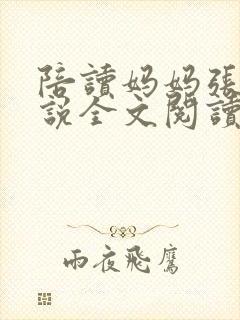 陪讀妈妈張
說全文閱讀
雨夜飛鷹